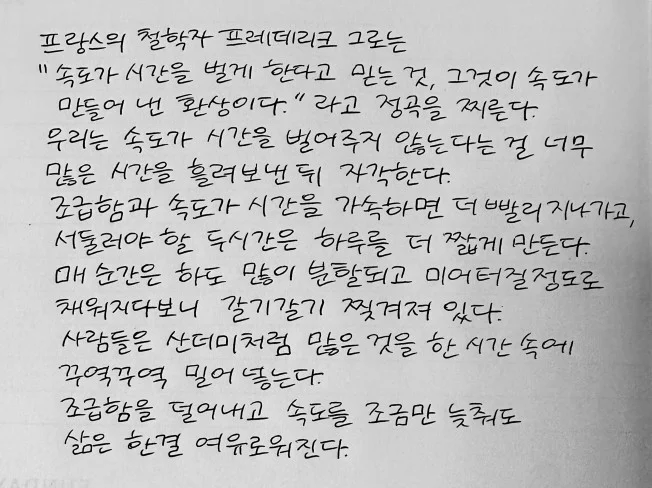 프랑스의 철학자 프레데리크 그로는
"속도가 시간을 벌게 한다고 믿는 것, 그것이 속도가
만들어 낸 환상이다." 라고 정곡을 찌른다.
우리는 속도가 시간을 벌어주지 않는다는 걸 너무
많은 시간을 흘려보낸 뒤 자각한다.
조급함과 속도가 시간을 가속하면 더 빨리 지나가고,
서둘러야 할 두시간은 하루를 더 짧게 만든다.
매 순간은 하도 많이 분할되고 미어터질정도로
채워지다보니 갈기갈기 찢겨져 있다.
사람들은 산더미처럼 많은 것을 한 시간 속에
꾸역꾸역 밀어 넣는다.
조급함을 덜어내고 속도를 조금만 늦춰도
삶은 한결 여유로워진다.